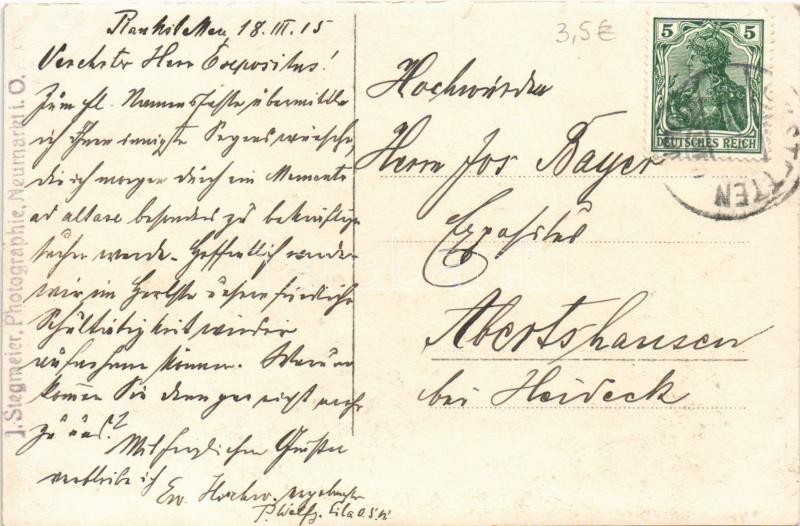 18. III. 15
Verehrter Herr Expositus!
Zum hl. Namensfeste übermittle
ich Ihnen innigste Segenswünsche,
die ich morgen durch ein Memento
ad altare besonders zu bekräftigen
suchen werde. Hoffentlich werden
wir im Herbste unsere friedliche
Schultätigkeit wieder
aufnehmen können. Warum
kommen Sie denn gar nicht mehr
zu uns?
Mit herzlichen Grüßen
verbleibe ich
Ew. Hochw. ergebenster
J. Stegmeier, Photographie, Neumarkt i. O.
3,5€
5 5
DEUTSCHES REICH
Hochwürden
Herrn Jos Bayer
Expositus
Abertshausen
bei Heideck